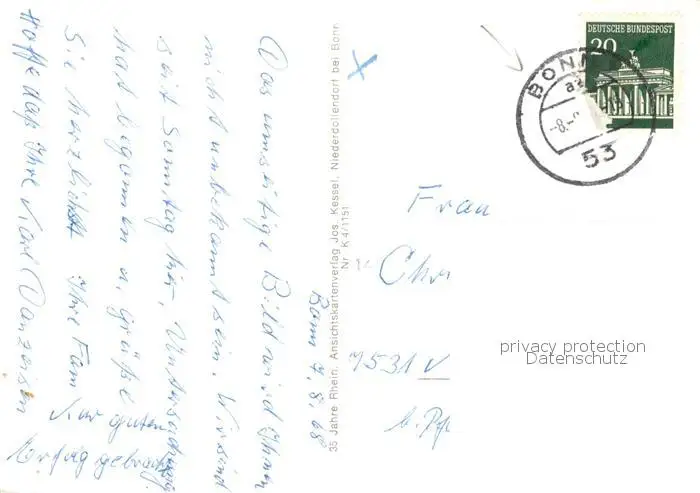 Bonn 7.8.68
Das umseitige Bild wird Ihnen
nicht unbekannt sein. Wir sind
seit Samstag hier, Untersuchung
hat begonnen u. grüße
Sie herzlichst Ihre Fam
Hoffe daß Ihre Karl Danzeisen
Kur guten
Erfolg gebracht
35 Jahre Rhein. Ansichtskartenverlag Jos. Kessel, Niederdollendorf bei Bonn
Nr K 4/1151
DEUTSCHE BUNDESPOST
20
BONN
53
Frau
Chr
7531
b. Pf
privacy protection
Datenschutz